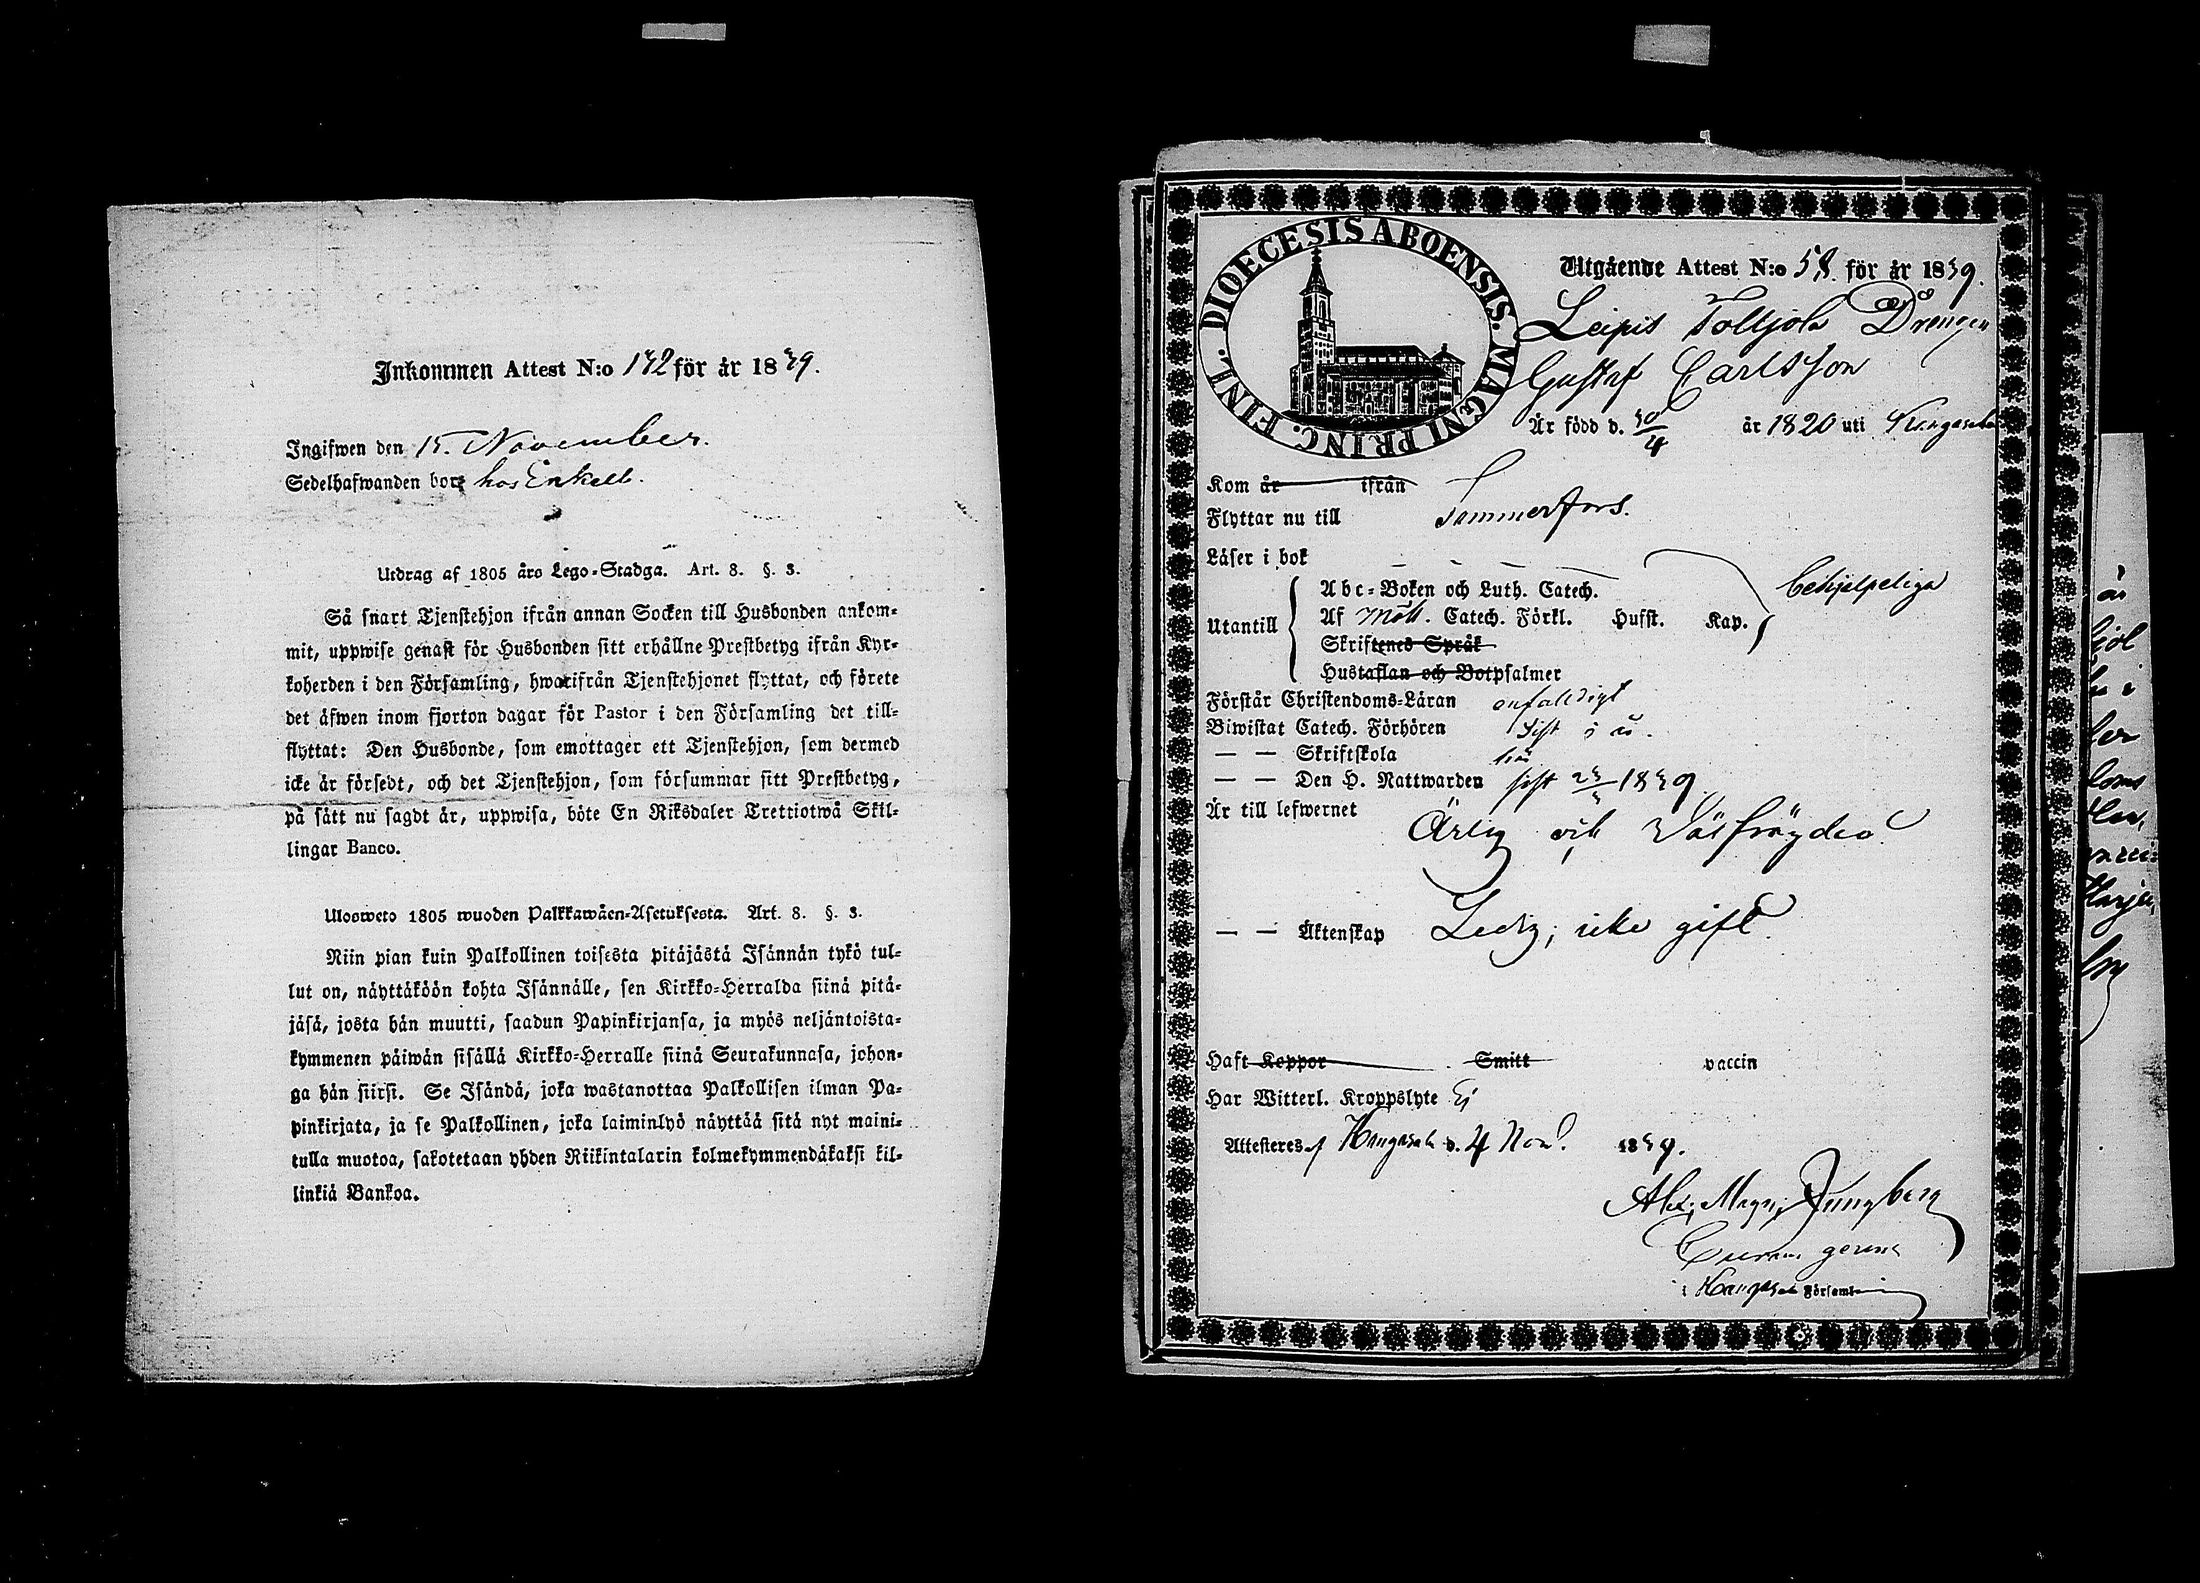 Inkommen Attest N:o 132 för år 1839.
Ingifwen den 15. November.
Sedelhafwanden bor hos Enkell.
Utdrag af 1805 års Lego-Stadga. Art. 8. §. 3.
Så snart Tjenstehjon ifrån annan Socken till Husbonden ankom-
mit, uppwise genast för Husbonden sitt erhållne Prestbetyg ifrån Kyr-
koherden i den Församling, hwarifrån Tjenstehjonet flyttat, och förete
det äfwen inom fjorton dagar för Pastor i den Församling det till-
flyttat: Den Husbonde, som emottager ett Tjenstehjon, som dermed
icke är försedt, och det Tjenstehjon, som försummar sitt Prestbetyg,
på sätt nu sagdt är, uppwisa, böte En Riksdaler Trettiotwå Skil-
lingar Banco.
Ulosweto 1805 wuoden Palkkawäen-Asetuksesta. Art. 8. §. 3.
Niin pian kuin Palkollinen toisesta pitäjästä Isännän tykö tul-
lut on, näyttäköön kohta Isännälle, sen Kirkko-Herralda siinä pitä-
jäsä, josta hän muutti, saadun Papinkirjansa, ja myös neljäntoista-
kymmenen päiwän sisällä Kirkko-Herralle siinä Seurakunnasa, johon-
ga hän siirsi. Se Isändä, joka wastanottaa Palkollisen ilman Pa-
pinkirjata, ja se Palkollinen, joka laiminlyö näyttää sitä nyt maini-
tulla muotoa, sakotetaan yhden Riikintalarin kolmekymmendäkaksi kil-
linkiä Bankoa.
DIOECESIS ABOENSIS. MAGNI PRINC. FINL.
Utgående Attest N:o 58. för år 1839.
Leipis Toltjola Drengen
Gustaf Carlsson
Är född d. 30/4 år 1820 uti Kangasala
Kom år ifrån
Flyttar nu till Tammerfors.
Läser i bok
Utantill
Abc-Boken och Luth. Catech.
Af Möll. Catech. Förkl. Hufst. Kap.
behjelpeliga
Skriftenes Språk
Hustaflan och Botpsalmer
Förstår Christendoms-Läran enfaldigt
Biwistat Catech. Förhören sist i å.
— — Skriftskola
— — Den H. Nattwarden sist 23/3 1839
Är till lefwernet Ärlig och Välfrägdad.
— — Äktenskap Ledig, icke gift.
Haft Koppor Smitt vaccin
Har Witterl. Kroppslyte Ej
Attesteres af Kangasala d. 4 Nov. 1839.
Alex. Magn. Jungberg
i Kangasala Församl